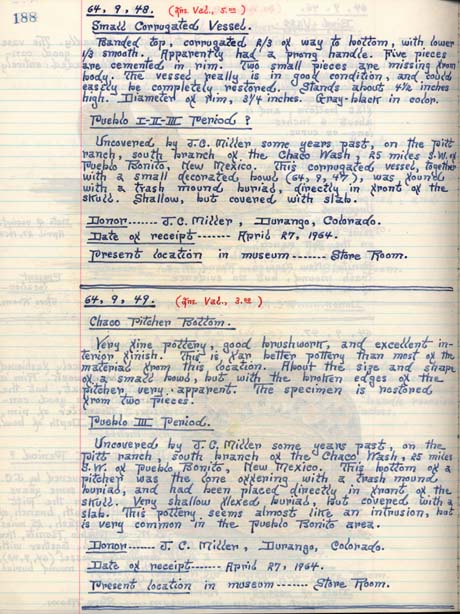 188
64, 9, 48. (Ins. Val., 5.00)
Small Corrugated Vessel.
Banded top, corrugated 2/3 of way to bottom, with lower
1/3 smooth. Apparently had a prong handle. Five pieces
are cemented in rim. Two small pieces are missing from
body. The vessel really is in good condition, and could
easily be completely restored. Stands about 4½ inches
high. Diameter of rim, 3¼ inches. Gray-black in color.
Pueblo I-II-III Period ?
Uncovered by J.C. Miller some years past, on the Pitt
ranch, south branch of the Chaco Wash, 25 miles S.W. of
Pueblo Bonito, New Mexico. This corrugated vessel, together
with a small decorated bowl (64, 9, 47), was found
with a trash mound burial, directly in front of the
skull. Shallow, but covered with slab.
Donor------- J.C. Miller, Durango, Colorado.
Date of receipt------- April 27, 1964.
Present location in museum------- Store Room.
64, 9, 49. (Ins. Val., 3.00)
Chaco Pitcher Bottom.
Very fine pottery, good brushwork, and excellent in-
terior finish. This is far better pottery than most of the
material from this location. About the size and shape
of a small bowl, but with the broken edges of the
pitcher very apparent. The specimen is restored
from two pieces.
Pueblo III Period.
Uncovered by J.C. Miller some years past, on the
Pitt ranch, south branch of the Chaco Wash, 25 miles
S.W. of Pueblo Bonito, New Mexico. This bottom of a
pitcher was the lone offering with a trash mound
burial, and had been placed directly in front of the
skull. Very shallow flexed burial, but covered with a
slab. This pottery seems almost like an intrusion, but
is very common in the Pueblo Bonito area.
Donor------- J. C. Miller, Durango, Colorado.
Date of receipt------- April 27, 1964.
Present location in museum------- Store Room.